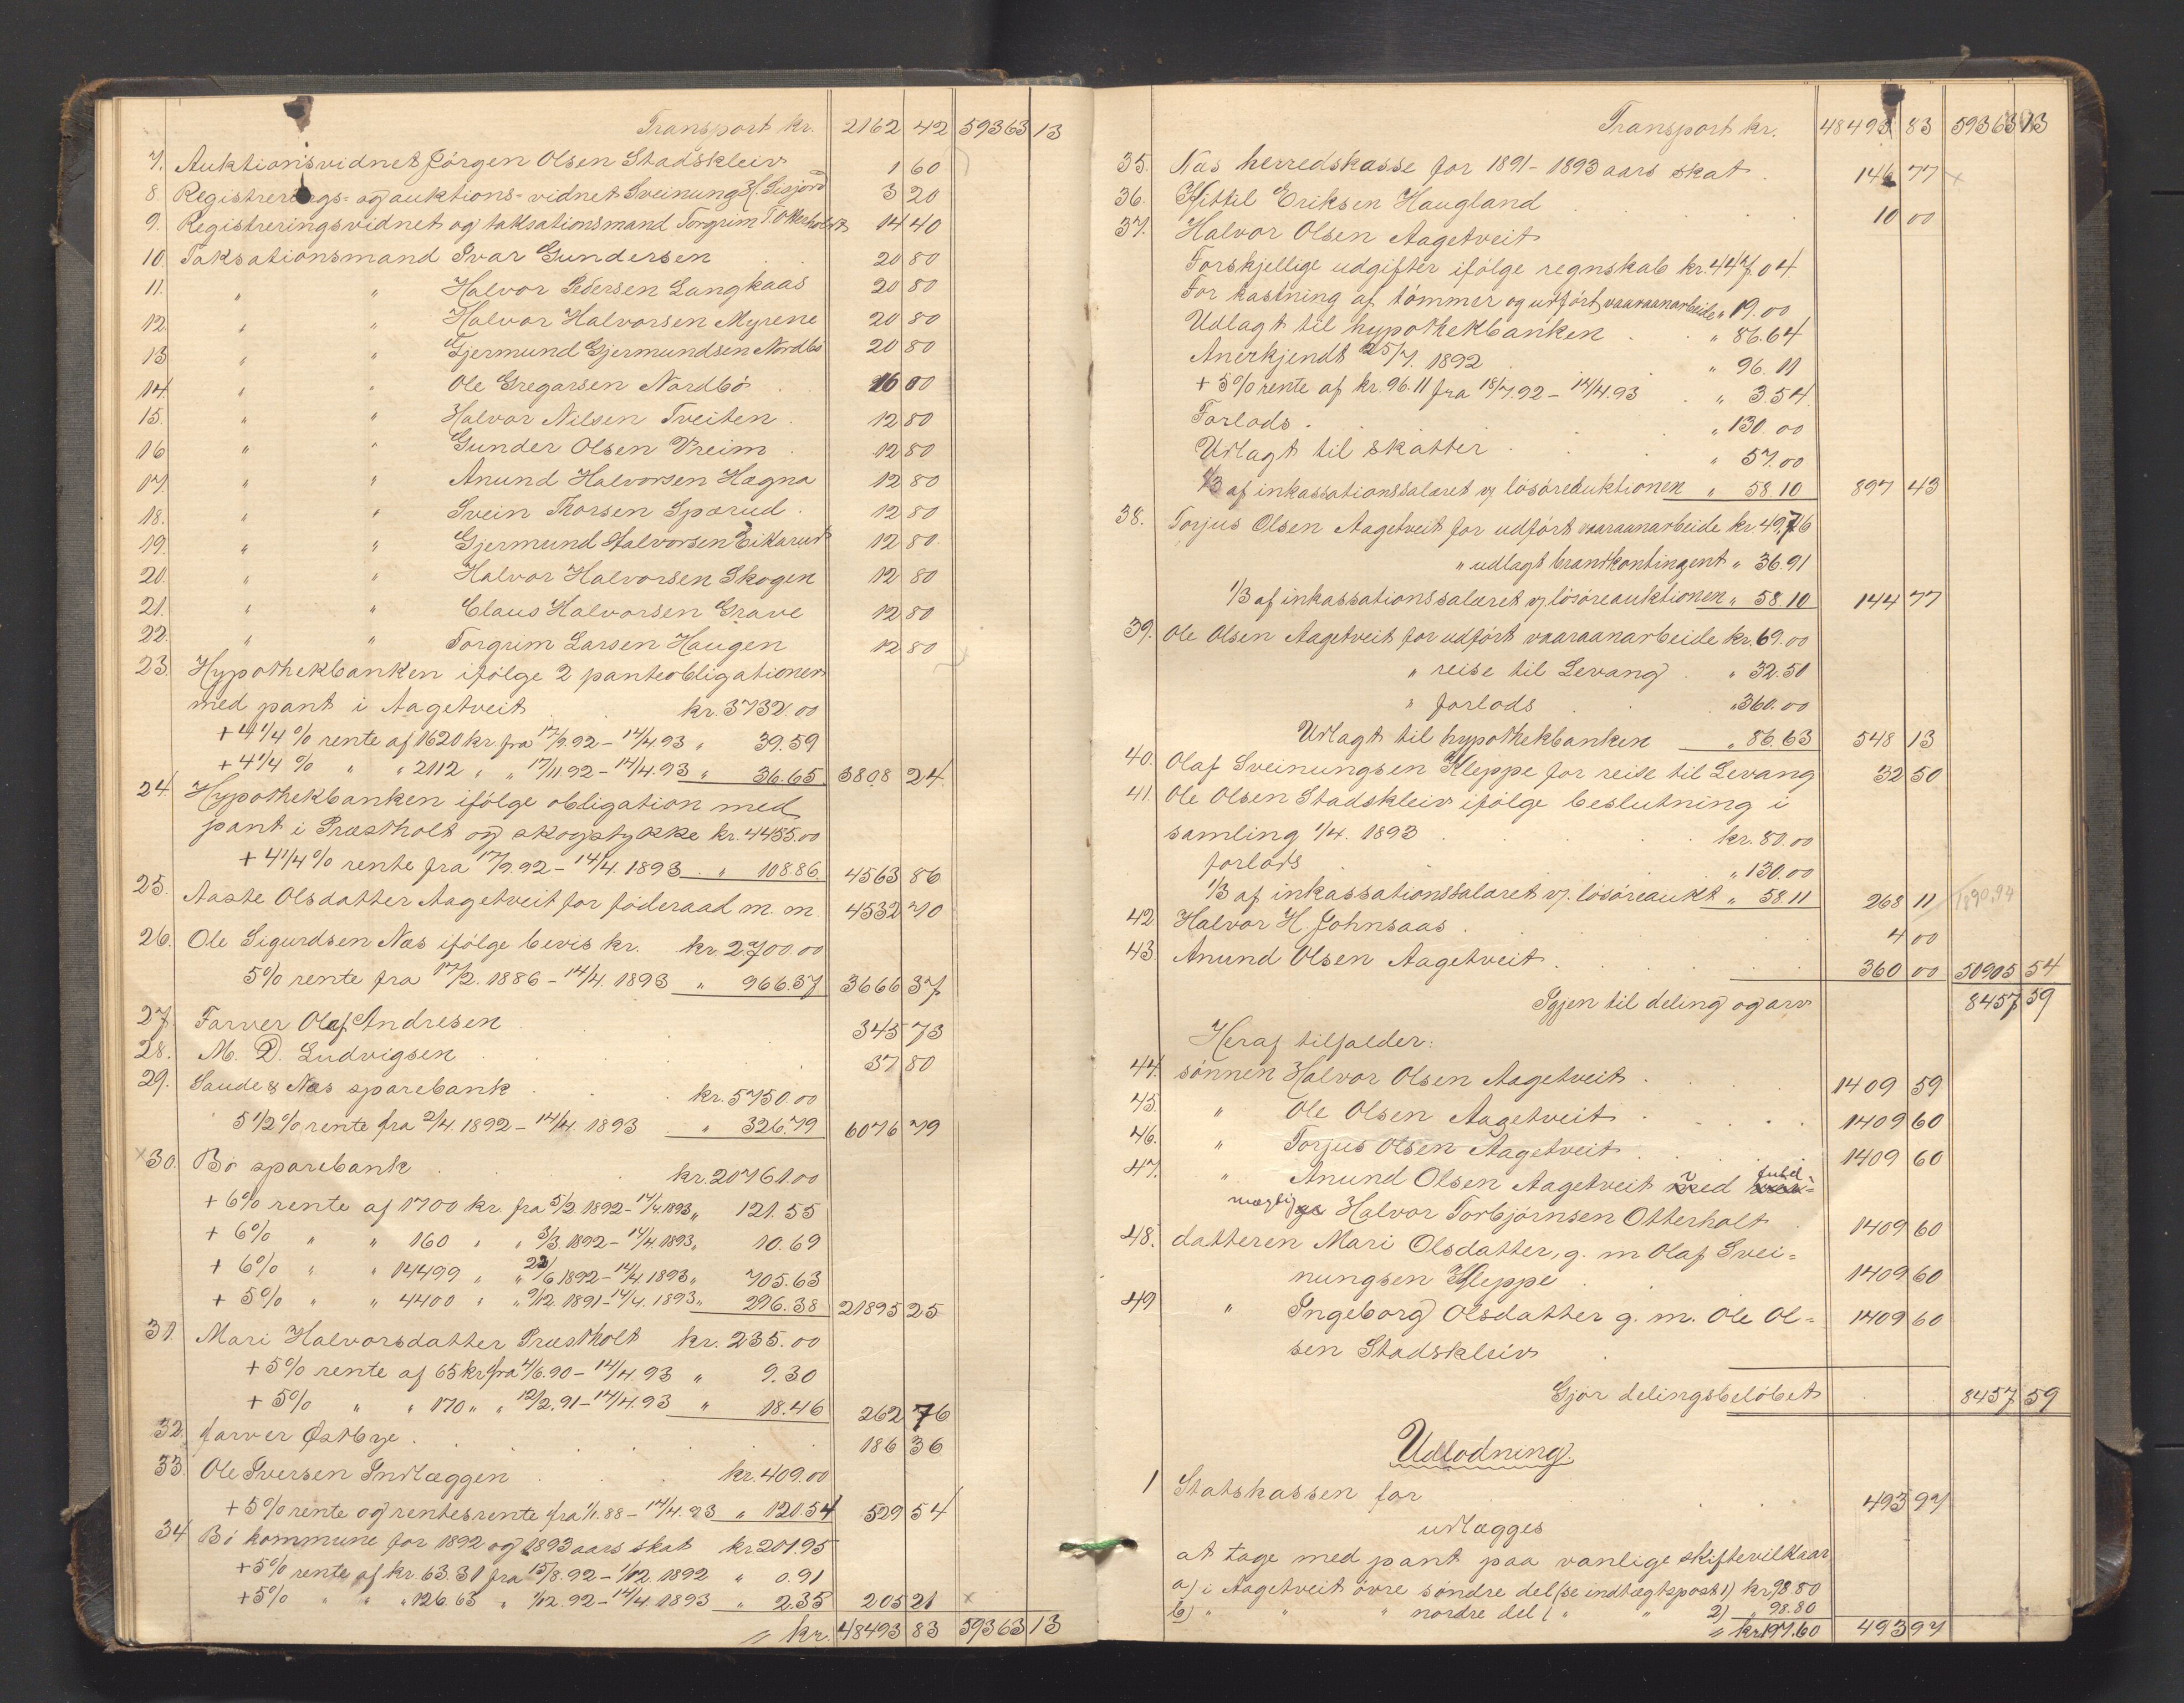 Transport kr. 2162 42 59363 13
7. Auktionsvidnet Jörgen Olsen Stadskleiv 1 60
8. Registrerings- og auktions-vidnet Sveinung H. Sisjord 3 20
9. Registreringsvidnet og taksationsmand Torgrim T. Otterholt 14 40
10. Taksationsmand Ivar Gundersen 20 80
11. " " Halvor Pedersen Langkaas 20 80
12. " " Halvor Halvorsen Myrene 20 80
13. " " Gjermund Gjermundsen Nordbö 20 80
14. " " Ole Gregarsen Nordbö 16 00
15. " " Halvor Nilsen Tveiten 12 80
16 " " Gunder Olsen Vreim 12 80
17. " " Anund Halvorsen Hægna 12 80
18. " " Svein Thorsen Sperud 12 80
19. " " Gjermund Halvorsen Eikarud 12 80
20. " " Halvor Halvorsen Skogen 12 80
21. " " Claus Halvorsen Grave 12 80
22. " " Torgrim Larsen Haugen 12 80
23. Hypothekbanken ifölge 2 panteobligationer
med pant i Aagetveit kr. 3732.00
+ 4 1/4 % rente af 1620 kr. fra 17/9.92 – 14/4.93 " 39.59
+ 4 1/4 % " " 2112 " " 17/11.92 – 14/4.93 " 36.65 3808 24
24. Hypothekbanken ifölge obligation med
pant i Præstholt og skogstykke kr. 4455.00
+ 4 1/4 % rente fra 17/9.92 – 14/4. 1893 " 108.86 4563 86
25. Aaste Olsdatter Aagetveit for föderaad m. m. 4532 70
26. Ole Sigurdsen Næs ifölge bevis kr. kr. 2700.00
5% rente fra 17/2. 1886 – 14/4. 1893 " 966.37 3666 37
27. Farver Olaf Andresen 345 73
28. M. D. Ludvigsen 37 80
29. Saude & Næs sparebank kr. 5750.00
5 1/2 % rente fra 2/4. 1892 – 14/4. 1893 " 326.79 6076 79
x 30. Bö sparebank kr. 20761.00
+ 6% rente af 1700 kr. fra 5/2 1892 – 14/4 1893 " 121.55
+ 6% " " 160 " " 3/3. 1892 – 14/4. 1893 " 10.69
+ 6% " " 14499 " " 23/6 1892 – 14/4. 1893 " 705.63
+ 5% " " 4400 " " 9/12. 1891 – 14/4. 1893 " 296.38 21895 25
31. Mari Halvorsdatter Præstholt kr. 235.00
+ 5% rente af 65 kr. fra 4/6.90 – 14/4.93 " 9.30
+ 5% " " 170 " " 12/2.91 – 14/4.93 " 18.46 262 76
32. farver Östbye 186 36
33. Ole Iversen Indlæggen kr. 409.00
+ 5% rente og rentesrente fra 1/1.88 – 14/4.93 " 120.54 529 54
34. Bö kommune for 1892 og 1893 aars skat kr. 201.95
+ 5% rente af kr. 63.31 fra 15/8.92 – 1/12. 1892 " 0.91
+ 5% " " " 126.63 " 1/12.92 – 14/4. 1893 " 2.35 205 21 x
= kr. 48493 83 59363 13
Transport kr. 48493 83 59363 13
35. Næs herredskasse for 1891 – 1893 aars skat 146 77 x
36. Kittil Eriksen Haugland 10 00
37. Halvor Olsen Aagetveit
Forskjellige udgifter ifölge regnskab kr. 447.04
For kastning af tömmer og udfört vaaraanarbeide " 19.00
Udlagt til hypothekbanken " 86.64
Anerkjendt 25/7. 1892 " 96.11
+ 5% rente af kr. 96.11 fra 18/7.92 – 14/4.93 " 3.54
Forlods " 130.00
Udlagt til skatter " 57.00
1/3 af inkassationssalæret v. lösöreauktionen " 58.10 897 43
38. Torjus Olsen Aagetveit for udfört vaaraanarbeide kr. 49.76
" udlagt brandkontingent " 36.91
1/3 af inkassationssalæret v. lösöreauktionen " 58.10 144 77
39. Ole Olsen Aagetveit for udfört vaaraanarbeide kr. 69.00
" reise til Levang " 32.50
" forlods " 360.00
Udlagt til hypothekbanken " 86.63 548 13
40. Olaf Sveinungsen Kleppe for reise til Levang 32 50
41. Ole Olsen Stadskleiv ifölge beslutning i
samling 1/4. 1893 kr. 80.00
forlods " 130.00
1/3 af inkassationssalæret v. lösöreaukt " 58.11 268 11 1890.94
42. Halvor H. Johnsaas 4 00
43. Anund Olsen Aagetveit 360 00 50905 54
Igjen til deling og arv 8457 59
Heraf tilfalder:
44. sönnen Halvor Olsen Aagetveit 1409 59
45. " Ole Olsen Aagetveit 1409 60
46. " Torjus Olsen Aagetveit 1409 60
47. " Anund Olsen Aagetveit ved fuld-
mægtig Halvor Torbjörnsen Otterholt 1409 60
48. datteren Mari Olsdatter, g. m Olaf Svei-
nungsen Kleppe 1409 60
49 " Ingeborg Olsdatter g. m. Ole Ol-
sen Stadskleiv 1409 60
Gjör delingsbelöbet 8457 59
Udlodning.
1 Statskassen for 493 97
udlægges
at tage med pant paa vanlige skiftevilkaar
a) i Aagetveit övre söndre del (se indtægtspost 1) kr. 98.80
b) " " " nordre del ( " " 2) " 98.80
= kr. 197.60 493 97